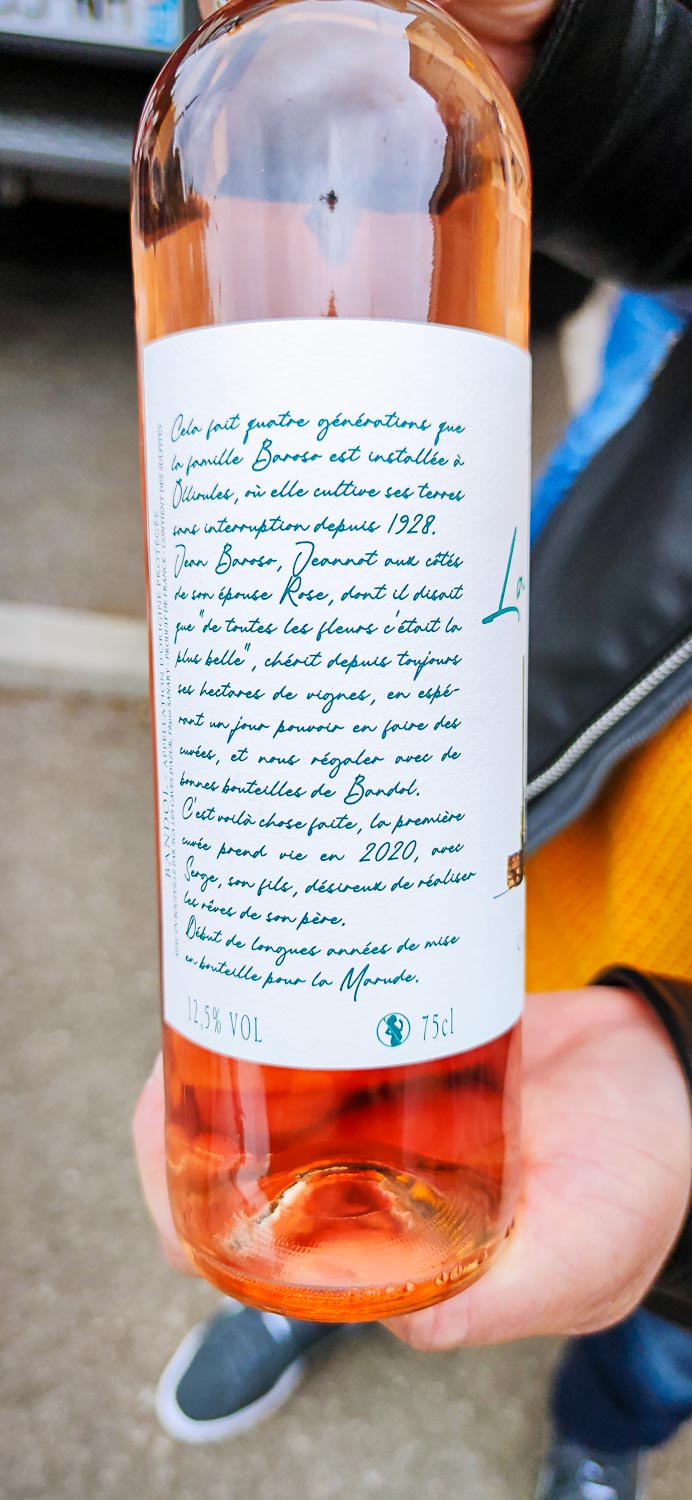 Cela fait quatre générations que
la famille Baroso est installée à
Ollioules, où elle cultive ses terres
sans interruption depuis 1928.
Jean Baroso, Jeannot aux côtés
de son épouse Rose, dont il disait
que "de toutes les fleurs c'était la
plus belle", chérit depuis toujours
ses hectares de vignes, en espé-
rant un jour pouvoir en faire des
cuvées, et nous régaler avec de
bonnes bouteilles de Bandol.
C'est voilà chose faite, la première
cuvée prend vie en 2020, avec
Serge, son fils, désireux de réaliser
les rêves de son père.
Début de longues années de mise
en bouteille pour la Marude.
12,5% VOL
75cl
BANDOL - APPELLATION D'ORIGINE PROTÉGÉE
PRODUIT DE FRANCE - CONTIENT DES SULFITES
La